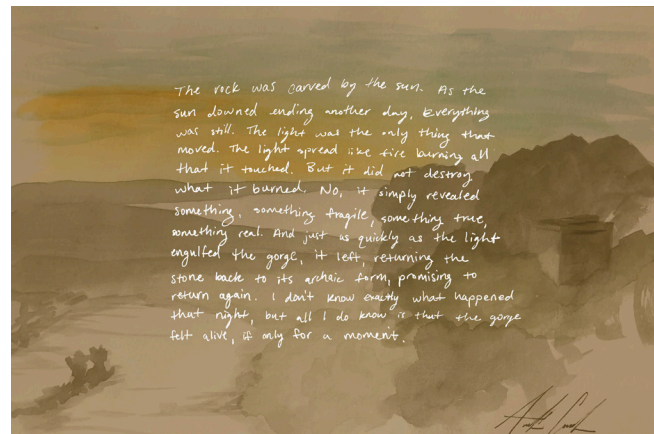 The rock was carved by the sun. As the
sun downed ending another day, Everything
was still. The light was the only thing that
moved. The light spread like fire burning all
that it touched. But it did not destroy
what it burned. No, it simply revealed
something, something fragile, something true,
something real. And just as quickly as the light
engulfed the gorge, it left, returning the
stone back to its archaic form, promising to
return again. I don't know exactly what happened
that night, but all I do know is that the gorge
felt alive, if only for a moment.